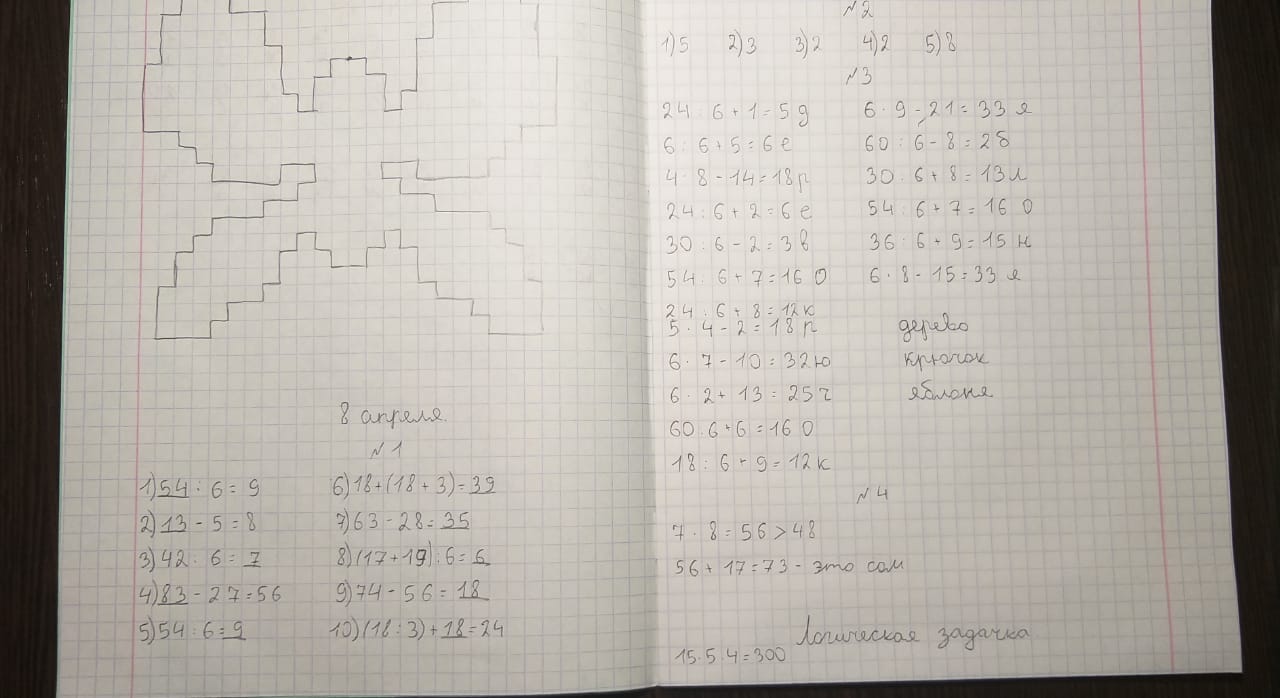 8 апреля.
№1
1) 54 : 6 = 9
2) 13 - 5 = 8
3) 42 : 6 = 7
4) 83 - 27 = 56
5) 54 : 6 = 9
6) 18 + (18 + 3) = 39
7) 63 - 28 = 35
8) (17 + 19) : 6 = 6
9) 74 - 56 = 18
10) (18 : 3) + 18 = 24
№2
1) 5 2) 3 3) 2 4) 2 5) 8
№3
24 : 6 + 1 = 5 д
6 : 6 + 5 = 6 е
4 · 8 - 14 = 18 р
24 : 6 + 2 = 6 е
30 : 6 - 2 = 3 в
54 : 6 + 7 = 16 о
24 : 6 + 8 = 12 к
5 · 4 - 2 = 18 р
6 · 7 - 10 = 32 ю
6 · 2 + 13 = 25 ч
60 : 6 + 6 = 16 о
18 : 6 + 9 = 12 к
6 · 9 - 21 = 33 я
60 : 6 - 8 = 2 б
30 : 6 + 8 = 13 л
54 : 6 + 7 = 16 о
36 : 6 + 9 = 15 н
6 · 8 - 15 = 33 я
дерево
крючок
яблоня
№4
7 · 8 = 56 > 48
56 + 17 = 73 - это сом
Логическая задачка
15 · 5 · 4 = 300